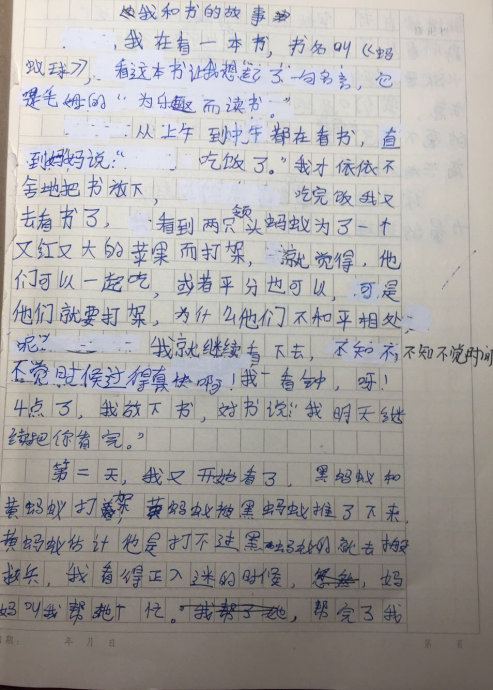 《我和书的故事》
，我在看一本书，书名叫《蚂
蚁球》，看这本书让我想起了一句名言，它
是毛姆的“为乐趣而读书。”
从上午到中午都在看书，直
到妈妈说：“吃饭了。”我才依依不
舍地把书放下，吃完饭我又
去看书了，看到两只领头蚂蚁为了一个
又红又大的苹果而打架，就觉得，他
们可以一起吃，或者平分也可以，可是
他们就要打架，为什么他们不和平相处
呢？我就继续看下去，不知不觉时间
不觉时候过得真快啊！我一看钟，呀！
4点了，我放下书，对书说：“我明天继
续把你看完。”
第二天，我又开始看了，黑蚂蚁和
黄蚂蚁打架，黄蚂蚁被黑蚂蚁推了下来，
黄蚂蚁估计他是打不过黑蚂蚁的就去搬
救兵，我看得正入迷的时候，妈
妈叫我帮她个忙。我帮了她，帮完了我
年 月 日
第 页